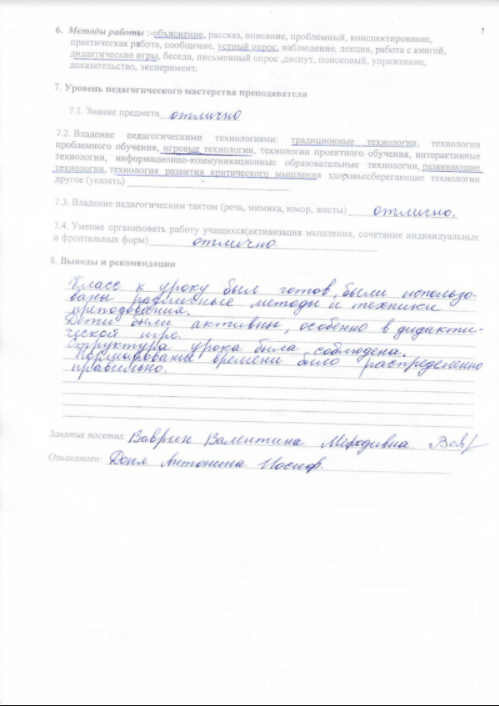 6. Методы работы :-объяснение, рассказ, описание, проблемный, конспектирование,
практическая работа, сообщение, устный опрос, наблюдение, лекция, работа с книгой,
дидактические игры, беседа, письменный опрос ,диспут, поисковый, упражнение,
доказательство, эксперимент.
7. Уровень педагогического мастерства преподавателя
7.1. Знание предмета отлично
7.2. Владение педагогическими технологиями: традиционные технологии, технологии
проблемного обучения, игровые технологии, технологии проектного обучения, интерактивные
технологии, информационно-коммуникационные образовательные технологии, развивающие
технологии, технология развития критического мышления здоровьесберегающие технологии
другое (указать)
7.3. Владение педагогическим тактом (речь, мимика, юмор, жесты) отлично.
7.4. Умения организовать работу учащихся(активизация мышления, сочетание индивидуальных
и фронтальных форм) отлично
8. Выводы и рекомендации
Класс к уроку был готов, были использо-
ваны различные методы и техники
преподования.
Дети были активны, особенно в дидакти-
ческой игре
Структура урока была соблюдена.
Нормирование времени было распределенно
правильно.
Занятие посетил: Валентина
Ознакомлен: Доня Антонина Иосиф.